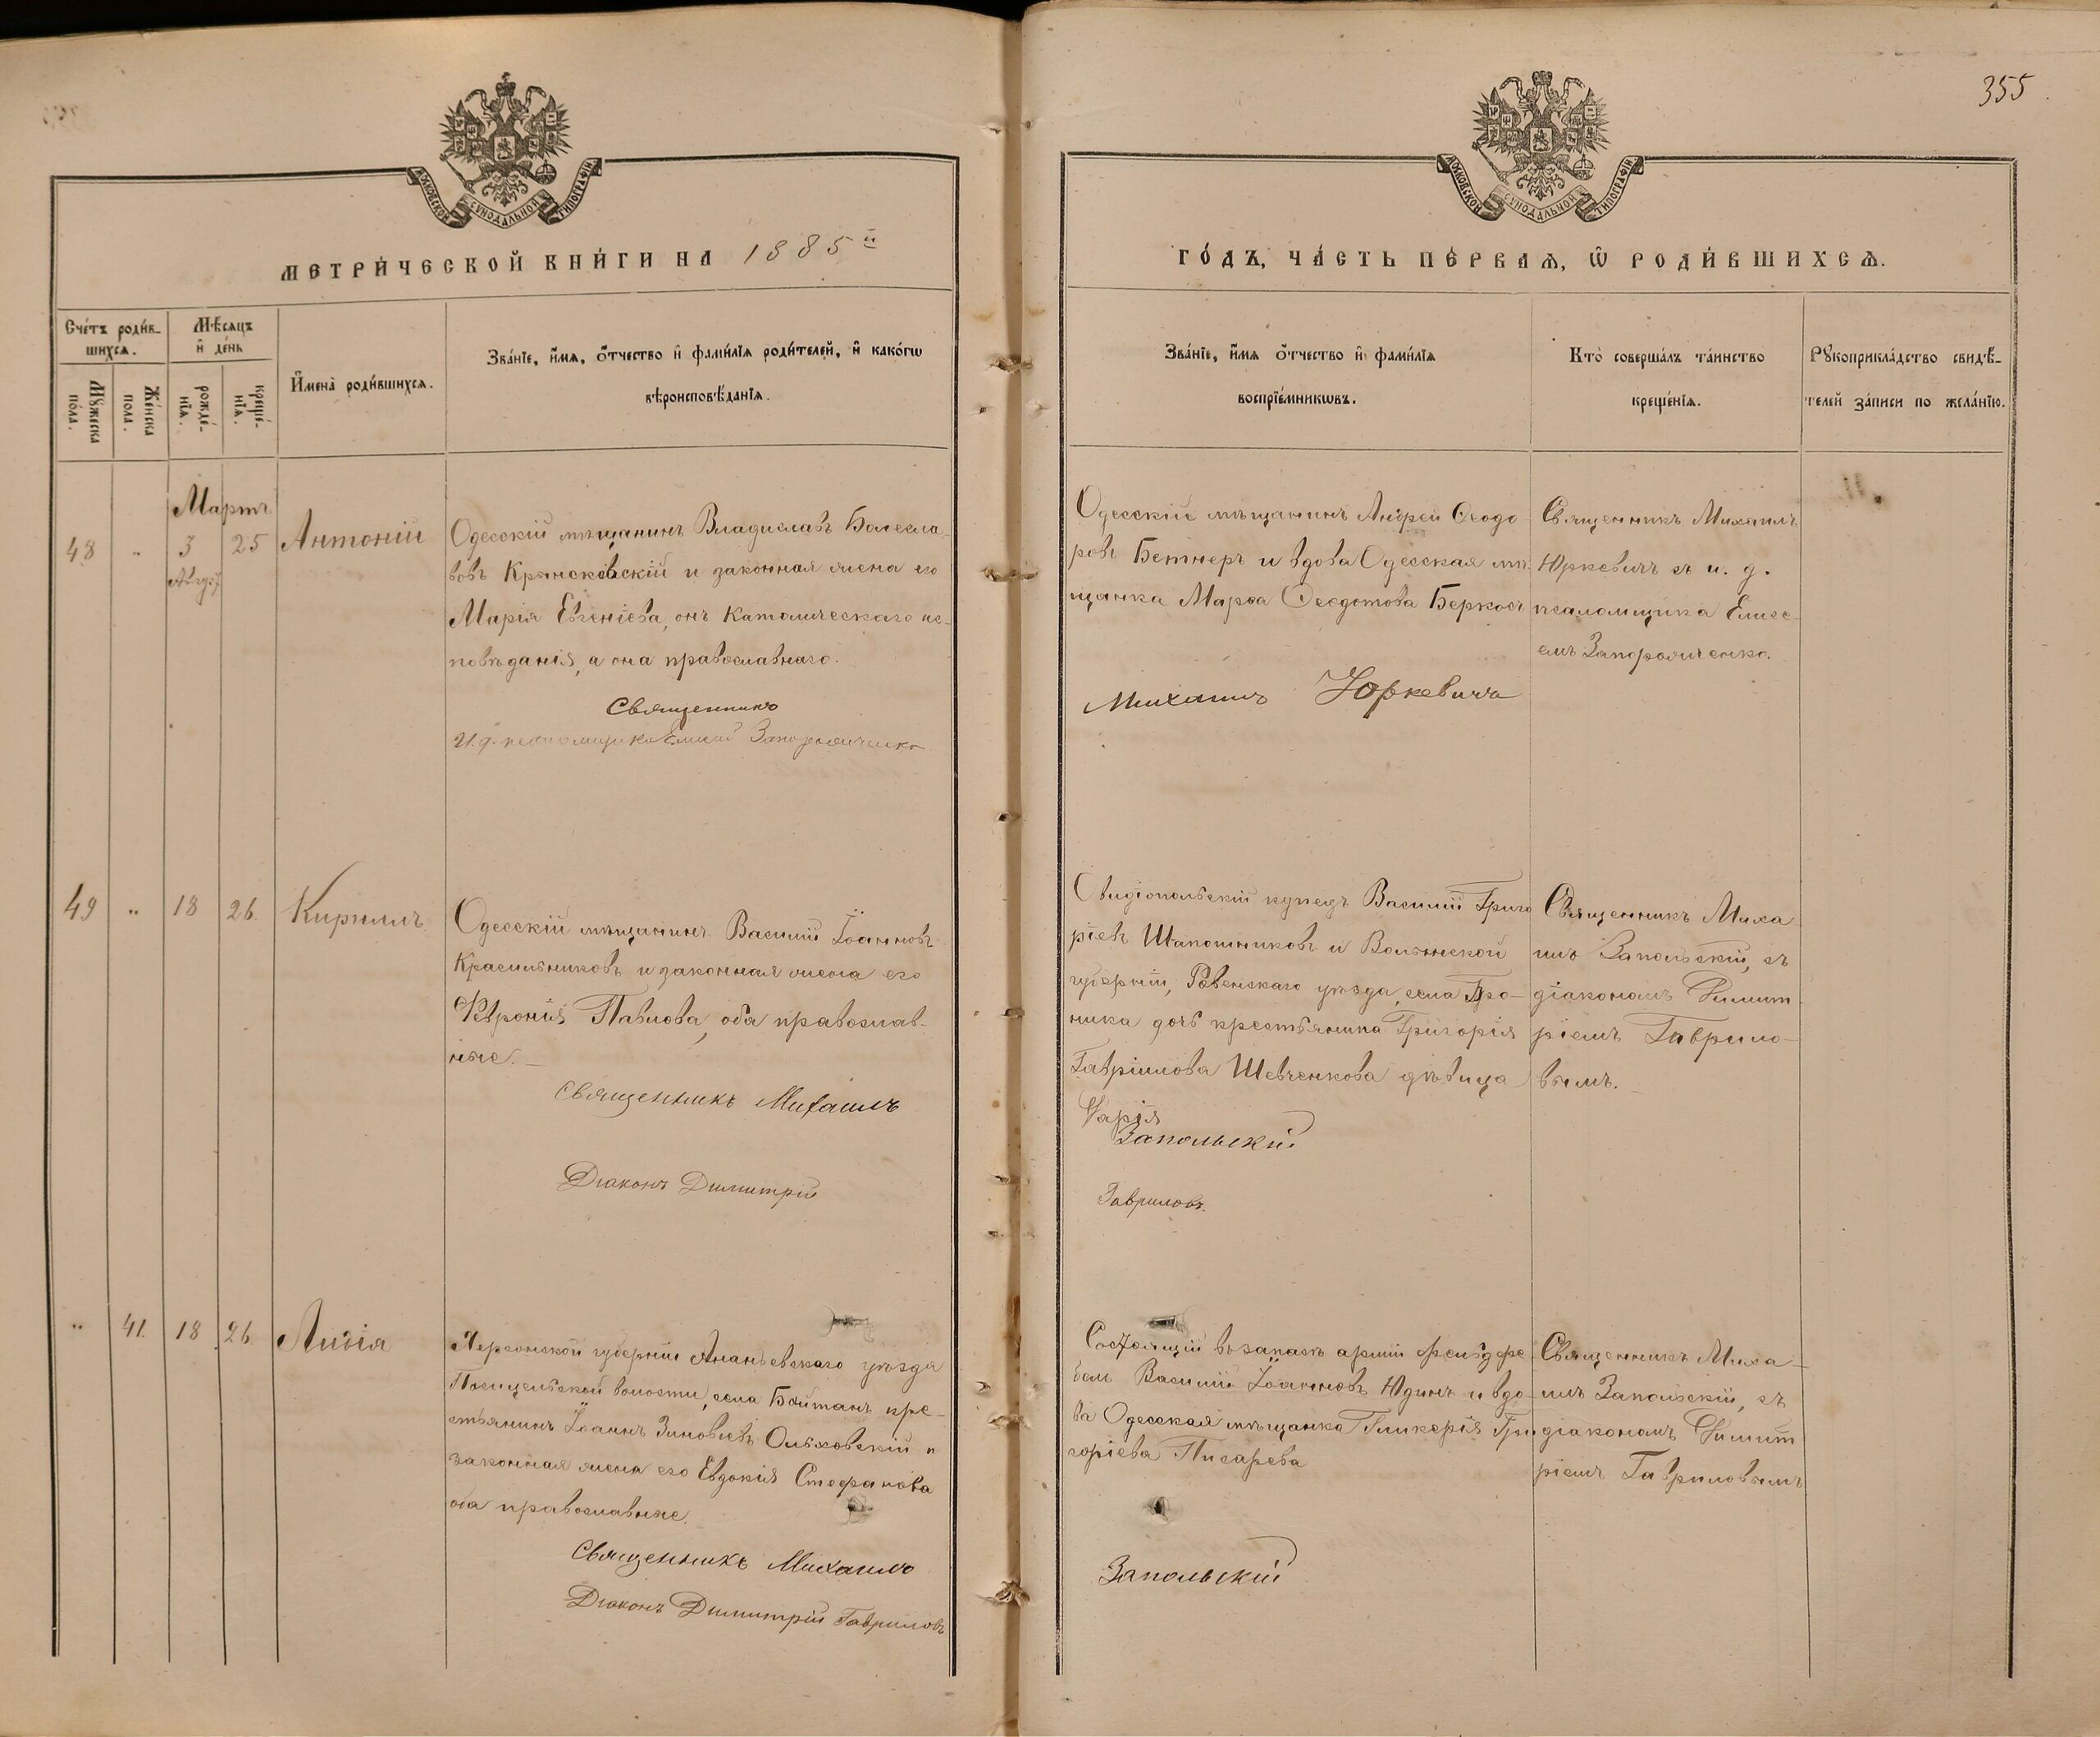 355
МОСКОВСКОЙ СѴНОДАЛЬНОЙ ТИПОГРАФІИ
МОСКОВСКОЙ СѴНОДАЛЬНОЙ ТИПОГРАФІИ
МЕТРИ́ЧЕСКОЙ КНИ́ГИ НА 1885й
ГО́ДЪ, ЧА́СТЬ ПЕ́РВАѦ, Ѡ РОДИ́ВШИХСѦ.
Сче́тъ роди́в-
шихсѧ.
Мꙋ́жеска
по́ла.
Же́нска
по́ла.
Мѣ́сѧцъ
и҆ де́нь
рожде́-
нїѧ.
креще́-
нїѧ.
И҆мена̀ роди́вшихсѧ.
Зва́нїе, и҆́мѧ, ѻ҆́тчество и҆ фами́лїѧ роди́телей, и҆ како́гѡ
вѣроисповѣ́данїѧ.
Зва́нїе, и҆́мѧ ѻ҆́тчество и҆ фами́лїѧ
воспрїе́мникѡвъ.
Кто̀ соверша́лъ та́инство
креще́нїѧ.
Рꙋкоприкла́дство свидѣ́-
телей за́писи по жела́нїю.
Мартъ
48 " 3 25 Антоній
Августъ
Одесскій мѣщанинъ Владиславъ Болесла-
вовъ Крынсковскій и законная жена его
Марія Евгеніева, онъ Католическаго ис-
повѣданія, а она православнаго.
Священникъ
И.д. псаломщика Елисей Запорожченко
Одесскій мѣщанинъ Андрей Ѳеодо-
ровъ Бетнеръ и вдова Одесская мѣ-
щанка Марѳа Ѳеодотова Беркосъ
Михаилъ Юркевичъ
Священникъ Михаилъ
Юркевичъ съ и. д.
псаломщика Елисе-
емъ Запорожченко.
49 " 18 26 Кириллъ
Одесскій мѣщанинъ Василій Іоанновъ
Красильниковъ и законная жена его
Феѵронія Павлова, оба православ-
ные.
Священникъ Михаилъ
Діаконъ Димитрій
Овидіопольскій купецъ Василій Григо
ріевъ Шапошниковъ и Волынской
губерніи, Ровенскаго уѣзда, села
ника дочь крестьянина Григорія
Гавріилова Шевченкова дѣвица
Марія
Запольскій
Гавриловъ.
Священникъ Миха-
илъ Запольскій, съ
діакономъ Димит-
ріемъ Гаврило-
вымъ.
" 41. 18 26 Лидія
Херсонской губерніи Ананьевскаго уѣзда
волости, села Байтанъ кре-
стьянинъ Іоаннъ Зиновіевъ Ольховскій и
законная жена его Евдокія Стефанова
оба православные.
Священникъ Михаилъ
Діаконъ Димитрій Гавриловъ
Состоящій въ запасѣ арміи фельдфе-
бель Василій Іоанновъ Юдинъ и вдо-
ва Одесская мѣщанка Гликерія Гри
горіева Писарева
Запольскій
Священникъ Миха-
илъ Запольскій, съ
діакономъ Димит
ріемъ Гавриловымъ